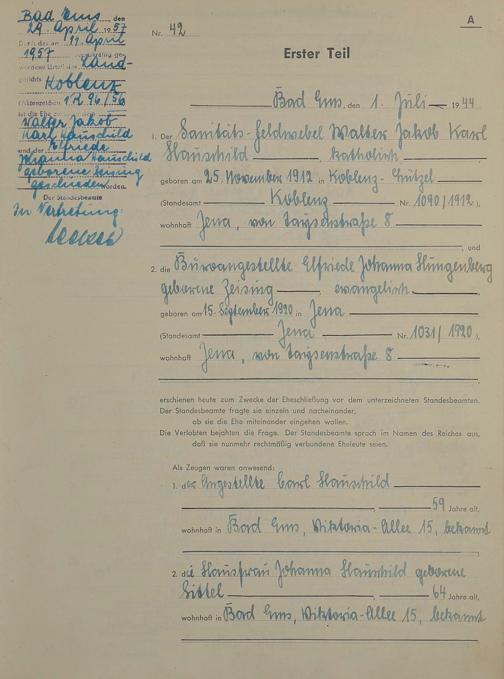 Bad Ems, den
29. April 1957
Durch das am 11. April
1957 rechtskräftig ge-
wordene Urteil des Land-
gerichts Koblenz
(Aktenzeichen 1 R 96/56
ist die Ehe
Walter Jakob
Karl Hauschild
und der Elfriede
Johanna Hauschild
geborene Zeising
geschieden worden.
Der Standesbeamte
In Vertretung:
A
Nr. 42
Erster Teil
Bad Ems, den 1. Juli 1944
1. Der Sanitäts-Feldwebel Walter Jakob Karl
Hauschild, katholisch
geboren am 25. November 1912 in Koblenz-Lützel
(Standesamt Koblenz Nr. 1090/1912),
wohnhaft Jena, von straße 8
, und
2. die Büroangestellte Elfriede Johanna Klingenberg
geborene Zeising evangelisch
geboren am 15. September 1920 in Jena
(Standesamt Jena Nr. 1031/1920),
wohnhaft Jena, von straße 8
erschienen heute zum Zwecke der Eheschließung vor dem unterzeichneten Standesbeamten.
Der Standesbeamte fragte sie einzeln und nacheinander,
ob sie die Ehe miteinander eingehen wollen.
Die Verlobten bejahten die Frage. Der Standesbeamte sprach im Namen des Reiches aus,
daß sie nunmehr rechtmäßig verbundene Eheleute seien.
Als Zeugen waren anwesend:
1. der Angestellte Carl Hauschild
, 59 Jahre alt,
wohnhaft in Bad Ems, Viktoria-Allee 15, bekannt
2. die Hausfrau Johanna Hauschild geborene
Sittel, 64 Jahre alt,
wohnhaft in Bad Ems, Viktoria-Allee 15, bekannt